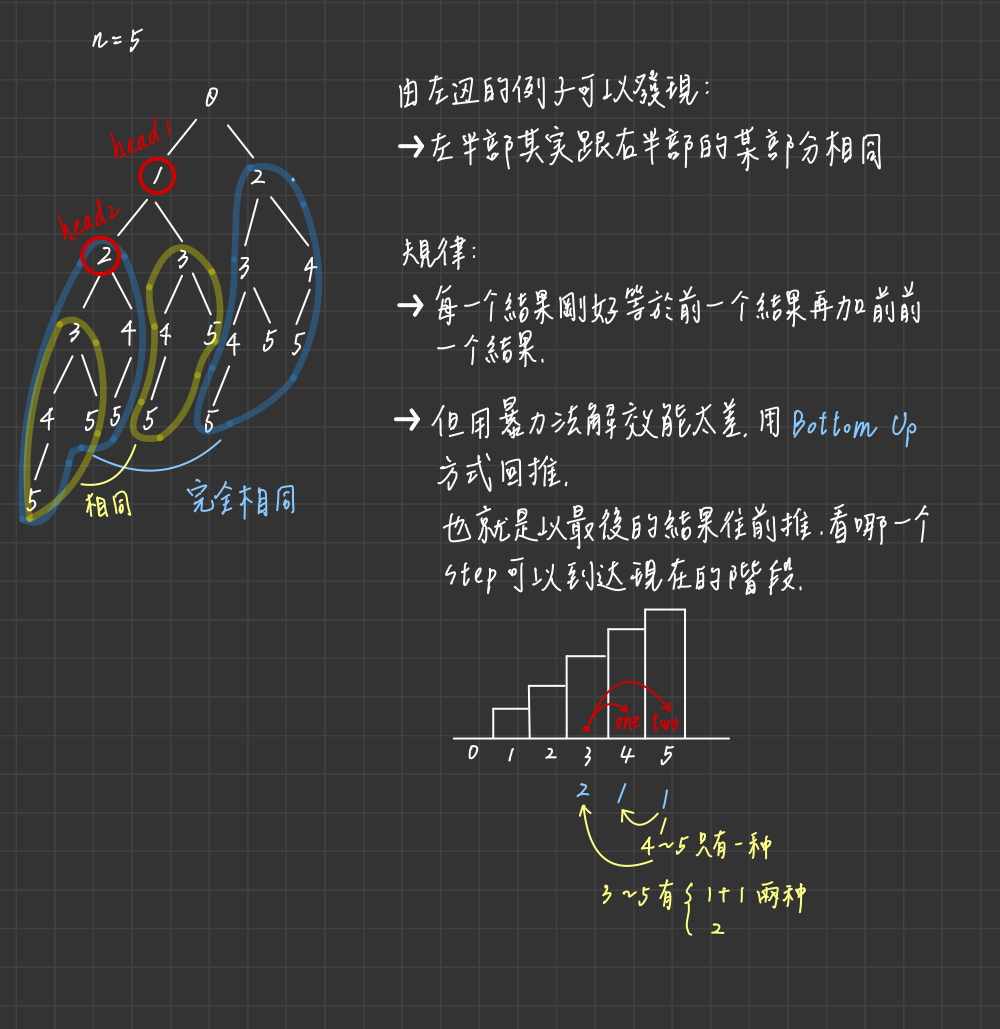 n=5
0
head1
1 2
head2
2 3 3 4
3 4 4 5 4 5 5
4 5 5 5 5
5
相同
完全相同
由左边的例子可以發現:
→左半部其实跟右半部的某部分相同
規律:
→ 每一个結果剛好等於前一个結果再加前前
一个結果.
→ 但用暴力法解效能太差,用 Bottom Up
方式回推.
也就是以最後的結果往前推,看哪一个
step可以到达現在的階段.
one two
0 1 2 3 4 5
2 1 1
4~5 只有一种
3~5有 { 1+1 兩种
2